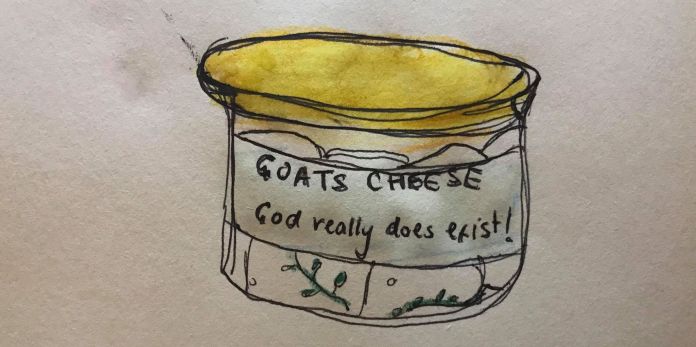 GOATS CHEESE
God really does exist!